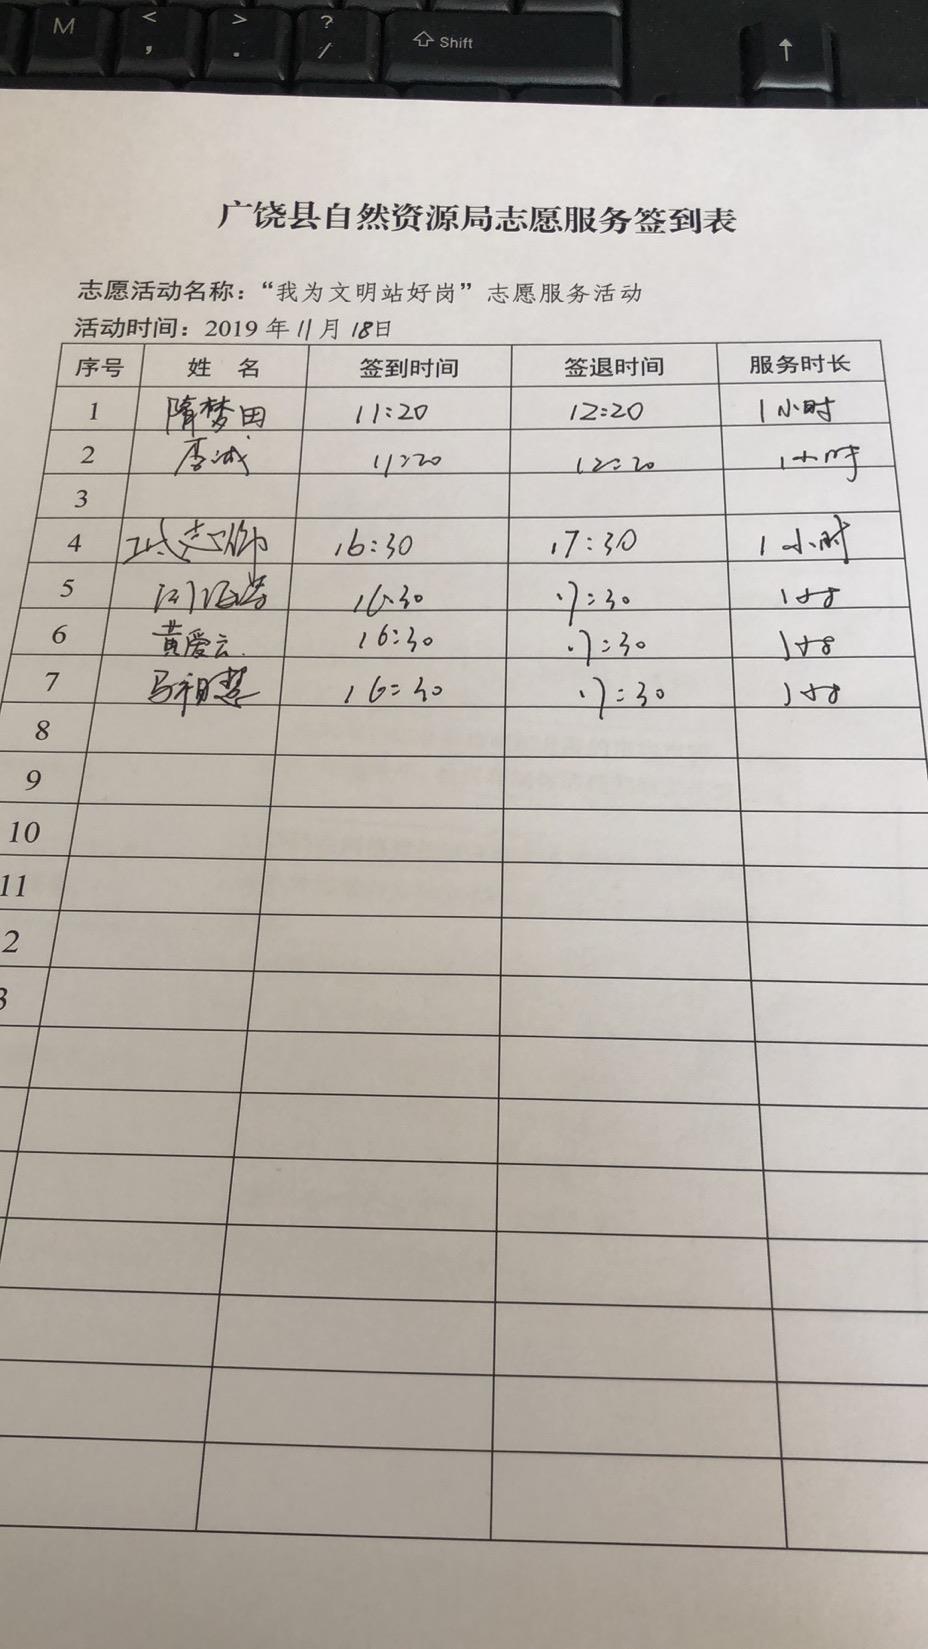 M < , > . ? / Shift ↑
广饶县自然资源局志愿服务签到表
志愿活动名称：“我为文明站好岗”志愿服务活动
活动时间：2019 年 11 月 18日
序号 姓 名 签到时间 签退时间 服务时长
1 隋梦田 11:20 12:20 1小时
2 李诚 11:20 12:20 1小时
3
4 16:30 17:30 1小时
5 16:30 17:30 1小时
6 黄爱云 16:30 17:30 1小时
7 马祖慧 16:30 17:30 1小时
8
9
10
11
2
3